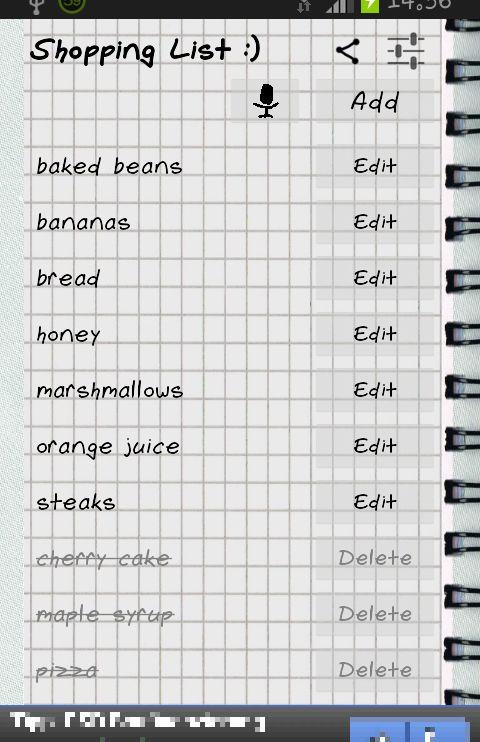 59
14:56
Shopping List :)
Add
baked beans Edit
bananas Edit
bread Edit
honey Edit
marshmallows Edit
orange juice Edit
steaks Edit
cherry cake Delete
maple syrup Delete
pizza Delete